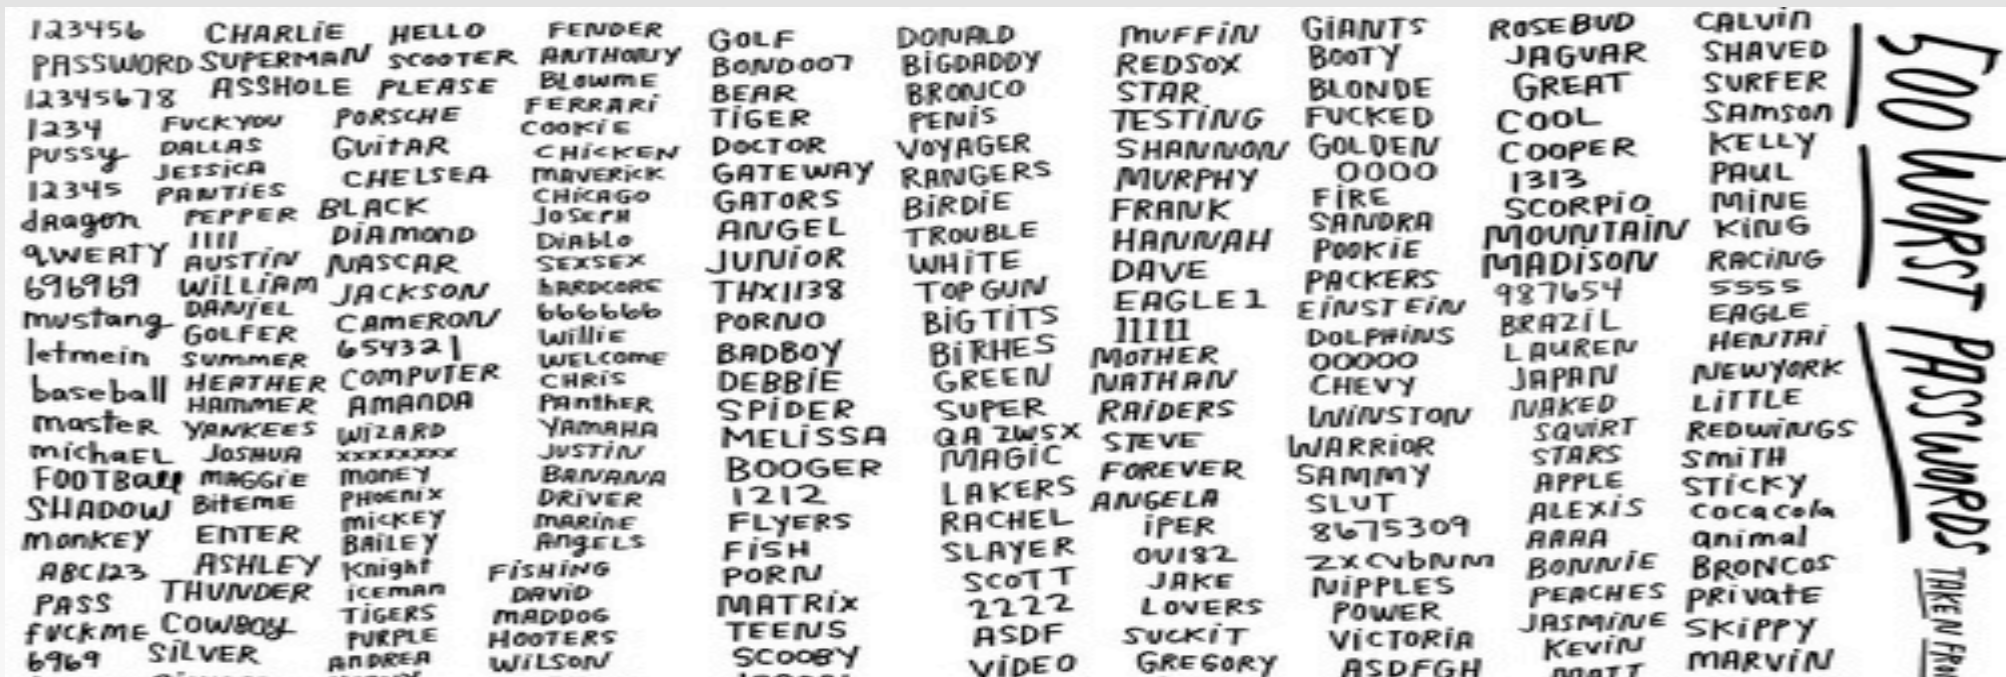 123456
PASSWORD
12345678
1234
PUSSY
12345
dragon
QWERTY
696969
mustang
letmein
baseball
master
michaEL
FOOTBall
SHADOW
monKEY
ABC123
PASS
FUCKME
6969
CHARLiE
SUPERMAN
ASSHOLE
FUCKYOU
DALLAS
JESSiCA
PANTiES
PEPPER
1111
AUSTiN
WiLLiAM
DANiEL
GOLFER
SUMMER
HEATHER
HAMMER
YANKEES
JOSHUA
MAGGiE
BiTEME
ENTER
ASHLEY
THUNDER
COWBOY
SiLVER
HELLO
SCOOTER
PLEASE
PORSCHE
GUiTAR
CHELSEA
BLACK
DiAMOND
NASCAR
JACKSON
CAMERON
654321
COMPUTER
AMANDA
WiZARD
xxxxxxxx
MONEY
PHOENiX
MiCKEY
BAiLEY
Knight
iCEMAN
TiGERS
PURPLE
ANDREA
FENDER
ANTHONY
BLOWME
FERRARi
COOKiE
CHiCKEN
MAVERiCK
CHiCAGO
JOSEPH
DiABLO
SEXSEX
hARDCORE
666666
Willie
WELCOME
CHRiS
PANTHER
YAMAHA
JUSTiN
BANANA
DRiVER
MARiNE
ANGELS
FiSHiNG
DAViD
MADDOG
HOOTERS
WiLSON
GOLF
BOND007
BEAR
TiGER
DOCTOR
GATEWAY
GATORS
ANGEL
JUNiOR
THX1138
PORNO
BADBOY
DEBBiE
SPiDER
MELiSSA
BOOGER
1212
FLYERS
FiSH
PORN
MATRiX
TEENS
SCOOBY
DONALD
BiGDADDY
BRONCO
PENiS
VOYAGER
RANGERS
BiRDiE
TROUBLE
WHiTE
TOPGUN
BiGTiTS
BiTCHES
GREEN
SUPER
QAZWSX
MAGiC
LAKERS
RACHEL
SLAYER
SCOTT
2222
ASDF
ViDEO
MUFFiN
REDSOX
STAR
TESTiNG
SHANNON
MURPHY
FRANK
HANNAH
DAVE
EAGLE1
11111
MOTHER
NATHAN
RAiDERS
STEVE
FOREVER
ANGELA
iPER
OU182
JAKE
LOVERS
SUCKiT
GREGORY
GiANTS
BOOTY
BLONDE
FUCKED
GOLDEN
0000
FiRE
SANDRA
POOKiE
PACKERS
EiNSTEiN
DOLPHiNS
00000
CHEVY
WiNSTON
WARRiOR
SAMMY
SLUT
8675309
ZXCVBNM
NiPPLES
POWER
ViCTORiA
ASDFGH
ROSEBUD
JAGUAR
GREAT
COOL
COOPER
1313
SCORPiO
MOUNTAiN
MADiSON
987654
BRAZiL
LAUREN
JAPAN
NAKED
SQUiRT
STARS
APPLE
ALEXiS
AAAA
BONNiE
PEACHES
JASMiNE
KEViN
MATT
CALViN
SHAVED
SURFER
SAMSON
KELLY
PAUL
MiNE
KiNG
RACiNG
5555
EAGLE
HENTAi
NEWYORK
LiTTLE
REDWiNGS
SMiTH
STiCKY
cocacola
animal
BRONCOS
PRiVATE
SKiPPY
MARViN
500 WORST PASSWORDS
TAKEN FROM